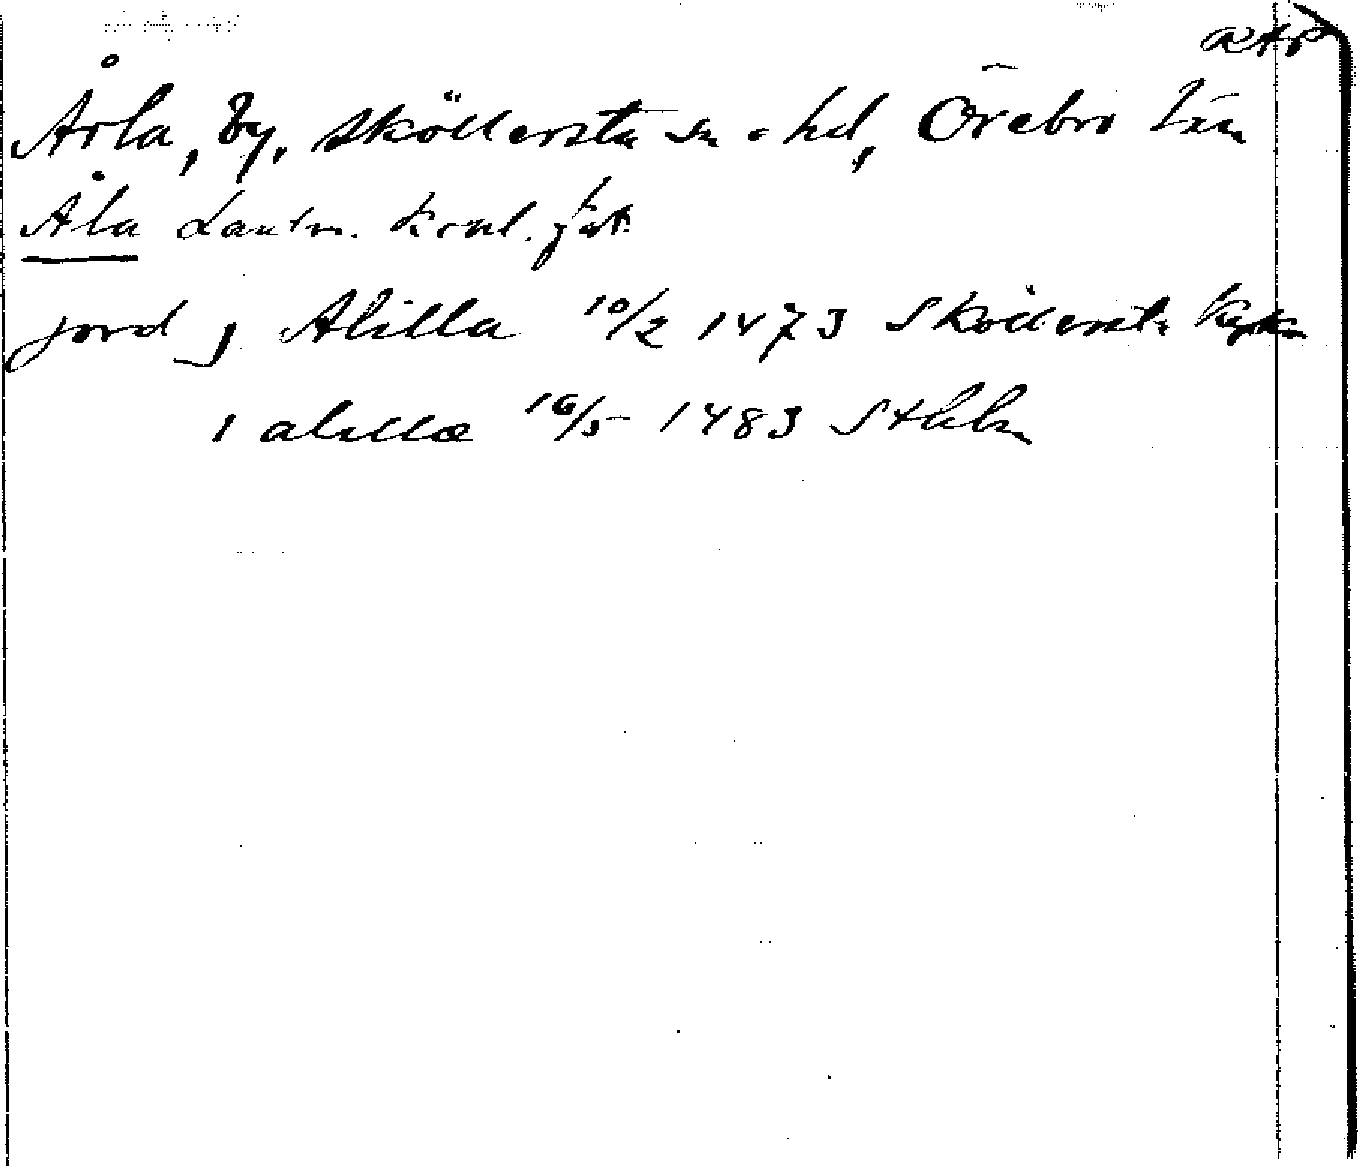 Årla, by, Sköllersta sn o hd, Örebro län
Åla Lantm. konl. jät
jord j Alilla 10/2 1473 Sköllersta kyrka
i alilla 16/5 1483 Sthlm